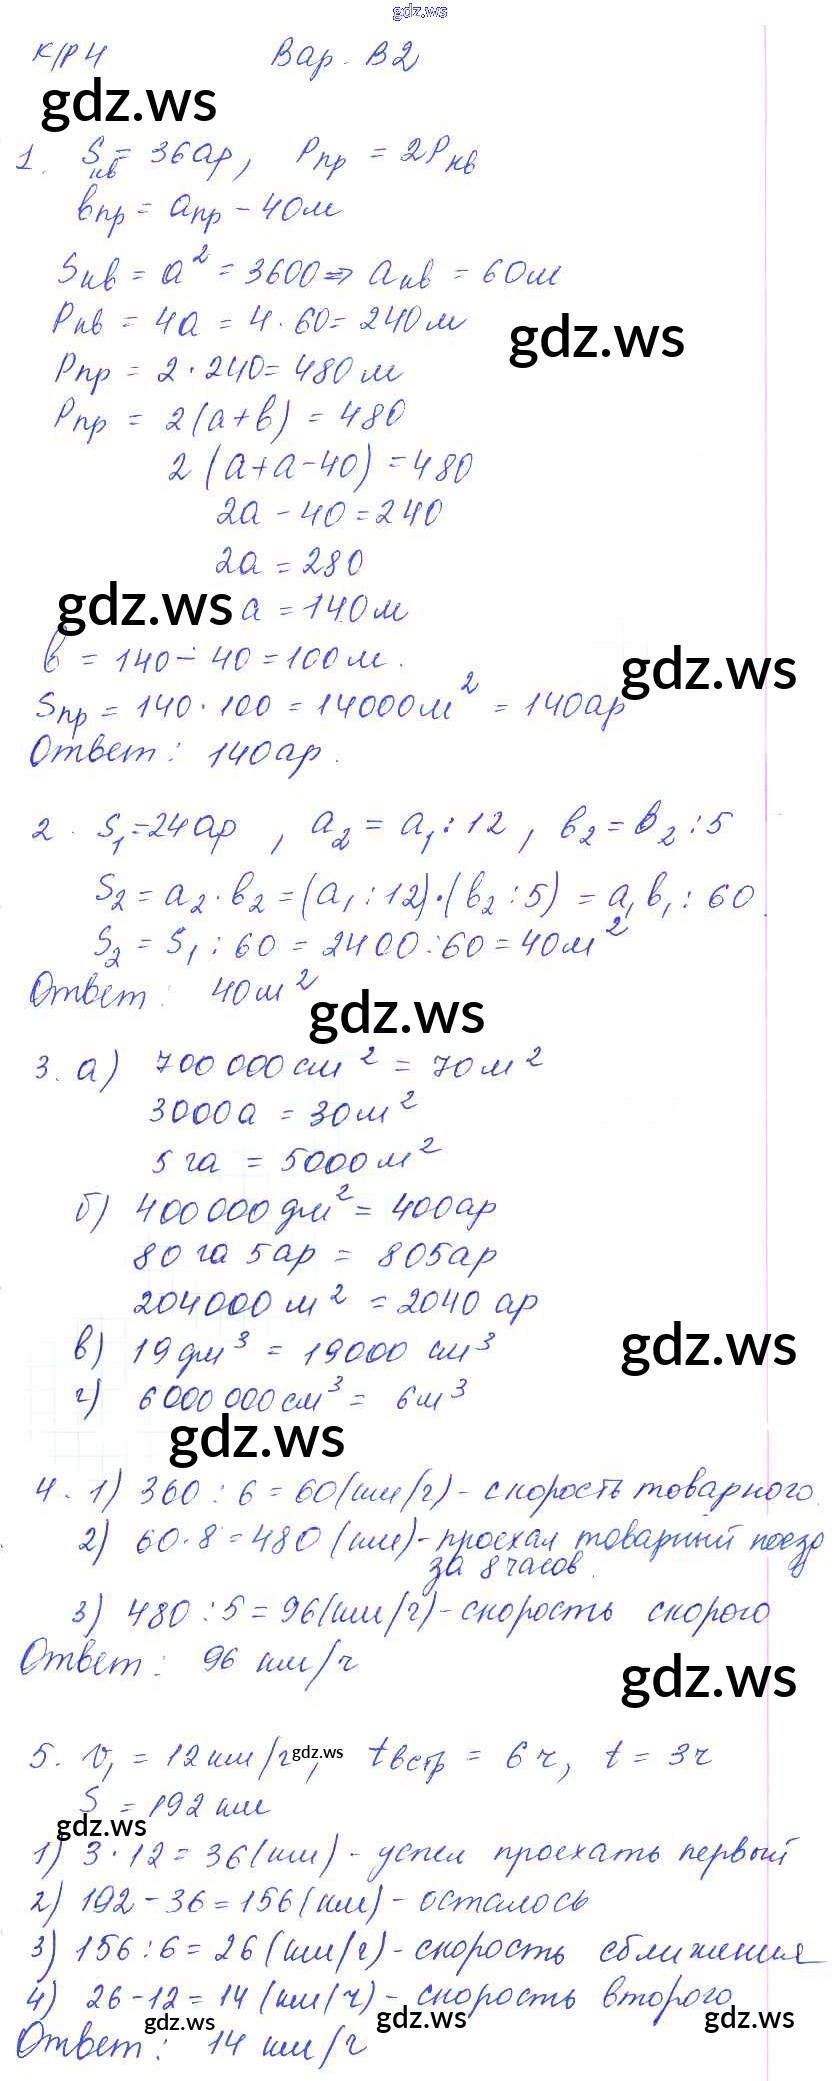 gdz.ws
К/Р 4 Вар. В2
gdz.ws
1. Sкв = 36ар, Pпр = 2Pкв
bпр = aпр - 40м
Sкв = a² = 3600 => aкв = 60м
Pкв = 4a = 4 · 60 = 240м
gdz.ws
Pпр = 2 · 240 = 480м
Pпр = 2(a+b) = 480
2(a+a-40) = 480
2a - 40 = 240
2a = 280
gdz.ws a = 140м
b = 140 - 40 = 100м.
gdz.ws
Sпр = 140 · 100 = 14000м² = 140ар
Ответ: 140ар.
2. S₁=24ар, a₂ = a₁:12, b₂ = b₂:5
S₂ = a₂ · b₂ = (a₁:12)·(b₂:5) = a₁b₁:60
S₂ = S₁:60 = 2400:60 = 40м²
Ответ: 40м²
gdz.ws
3. а) 700 000 см² = 70м²
3000а = 30м²
5 га = 5000м²
б) 400 000 дм² = 400ар
80 га 5ар = 805ар
204000 м² = 2040 ар
в) 19 дм³ = 19000 см³
gdz.ws
г) 6 000 000 см³ = 6м³
gdz.ws
4. 1) 360 : 6 = 60(км/ч) - скорость товарного
2) 60·8 = 480 (км) - проехал товарный поезд
за 8 часов.
3) 480 : 5 = 96(км/ч) - скорость скорого
Ответ: 96 км/ч
gdz.ws
5. v₁ = 12 км/ч, tвстр = 6ч, t = 3ч
gdz.ws
S = 192 км
gdz.ws
1) 3 · 12 = 36(км) - успел проехать первый
2) 192 - 36 = 156(км) - осталось
3) 156 : 6 = 26 (км/ч) - скорость сближения
4) 26 - 12 = 14 (км/ч) - скорость второго
gdz.ws gdz.ws gdz.ws
Ответ: 14 км/ч